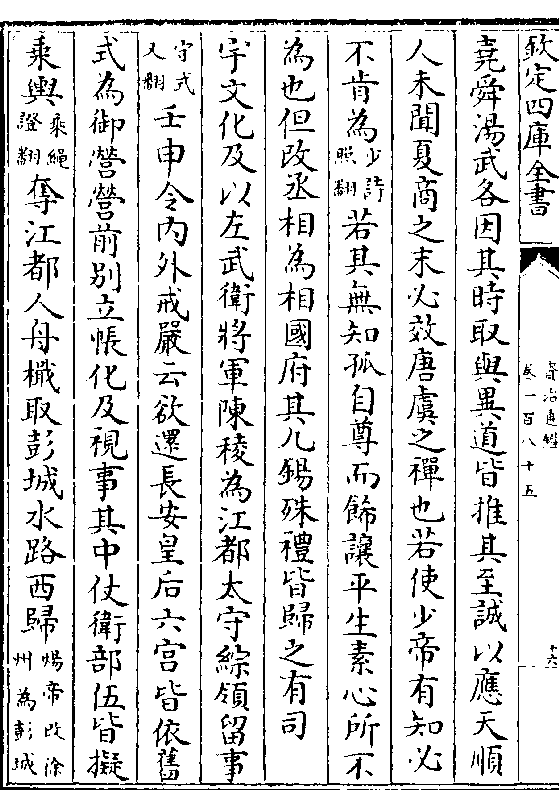 欽定四庫全書
資治通鑑
卷一百八十五
十六
堯舜湯武各因其時取與異道皆推其至誠以應天順
人未聞夏商之末必效唐虞之禪也若使少帝有知必
不肯為少詩照翻若其無知孤自尊而飾讓平生素心所不
為也但改丞相為相國府其九錫殊禮皆歸之有司
宇文化及以左武衛將軍陳稜為江都太守綜領留事
守式又翻壬申令內外戒嚴云欲還長安皇后六宫皆依舊
式為御營營前别立帳化及視事其中仗衛部伍皆擬
乘輿乘繩證翻奪江都人舟檝取彭城水路西歸煬帝改徐州為彭城